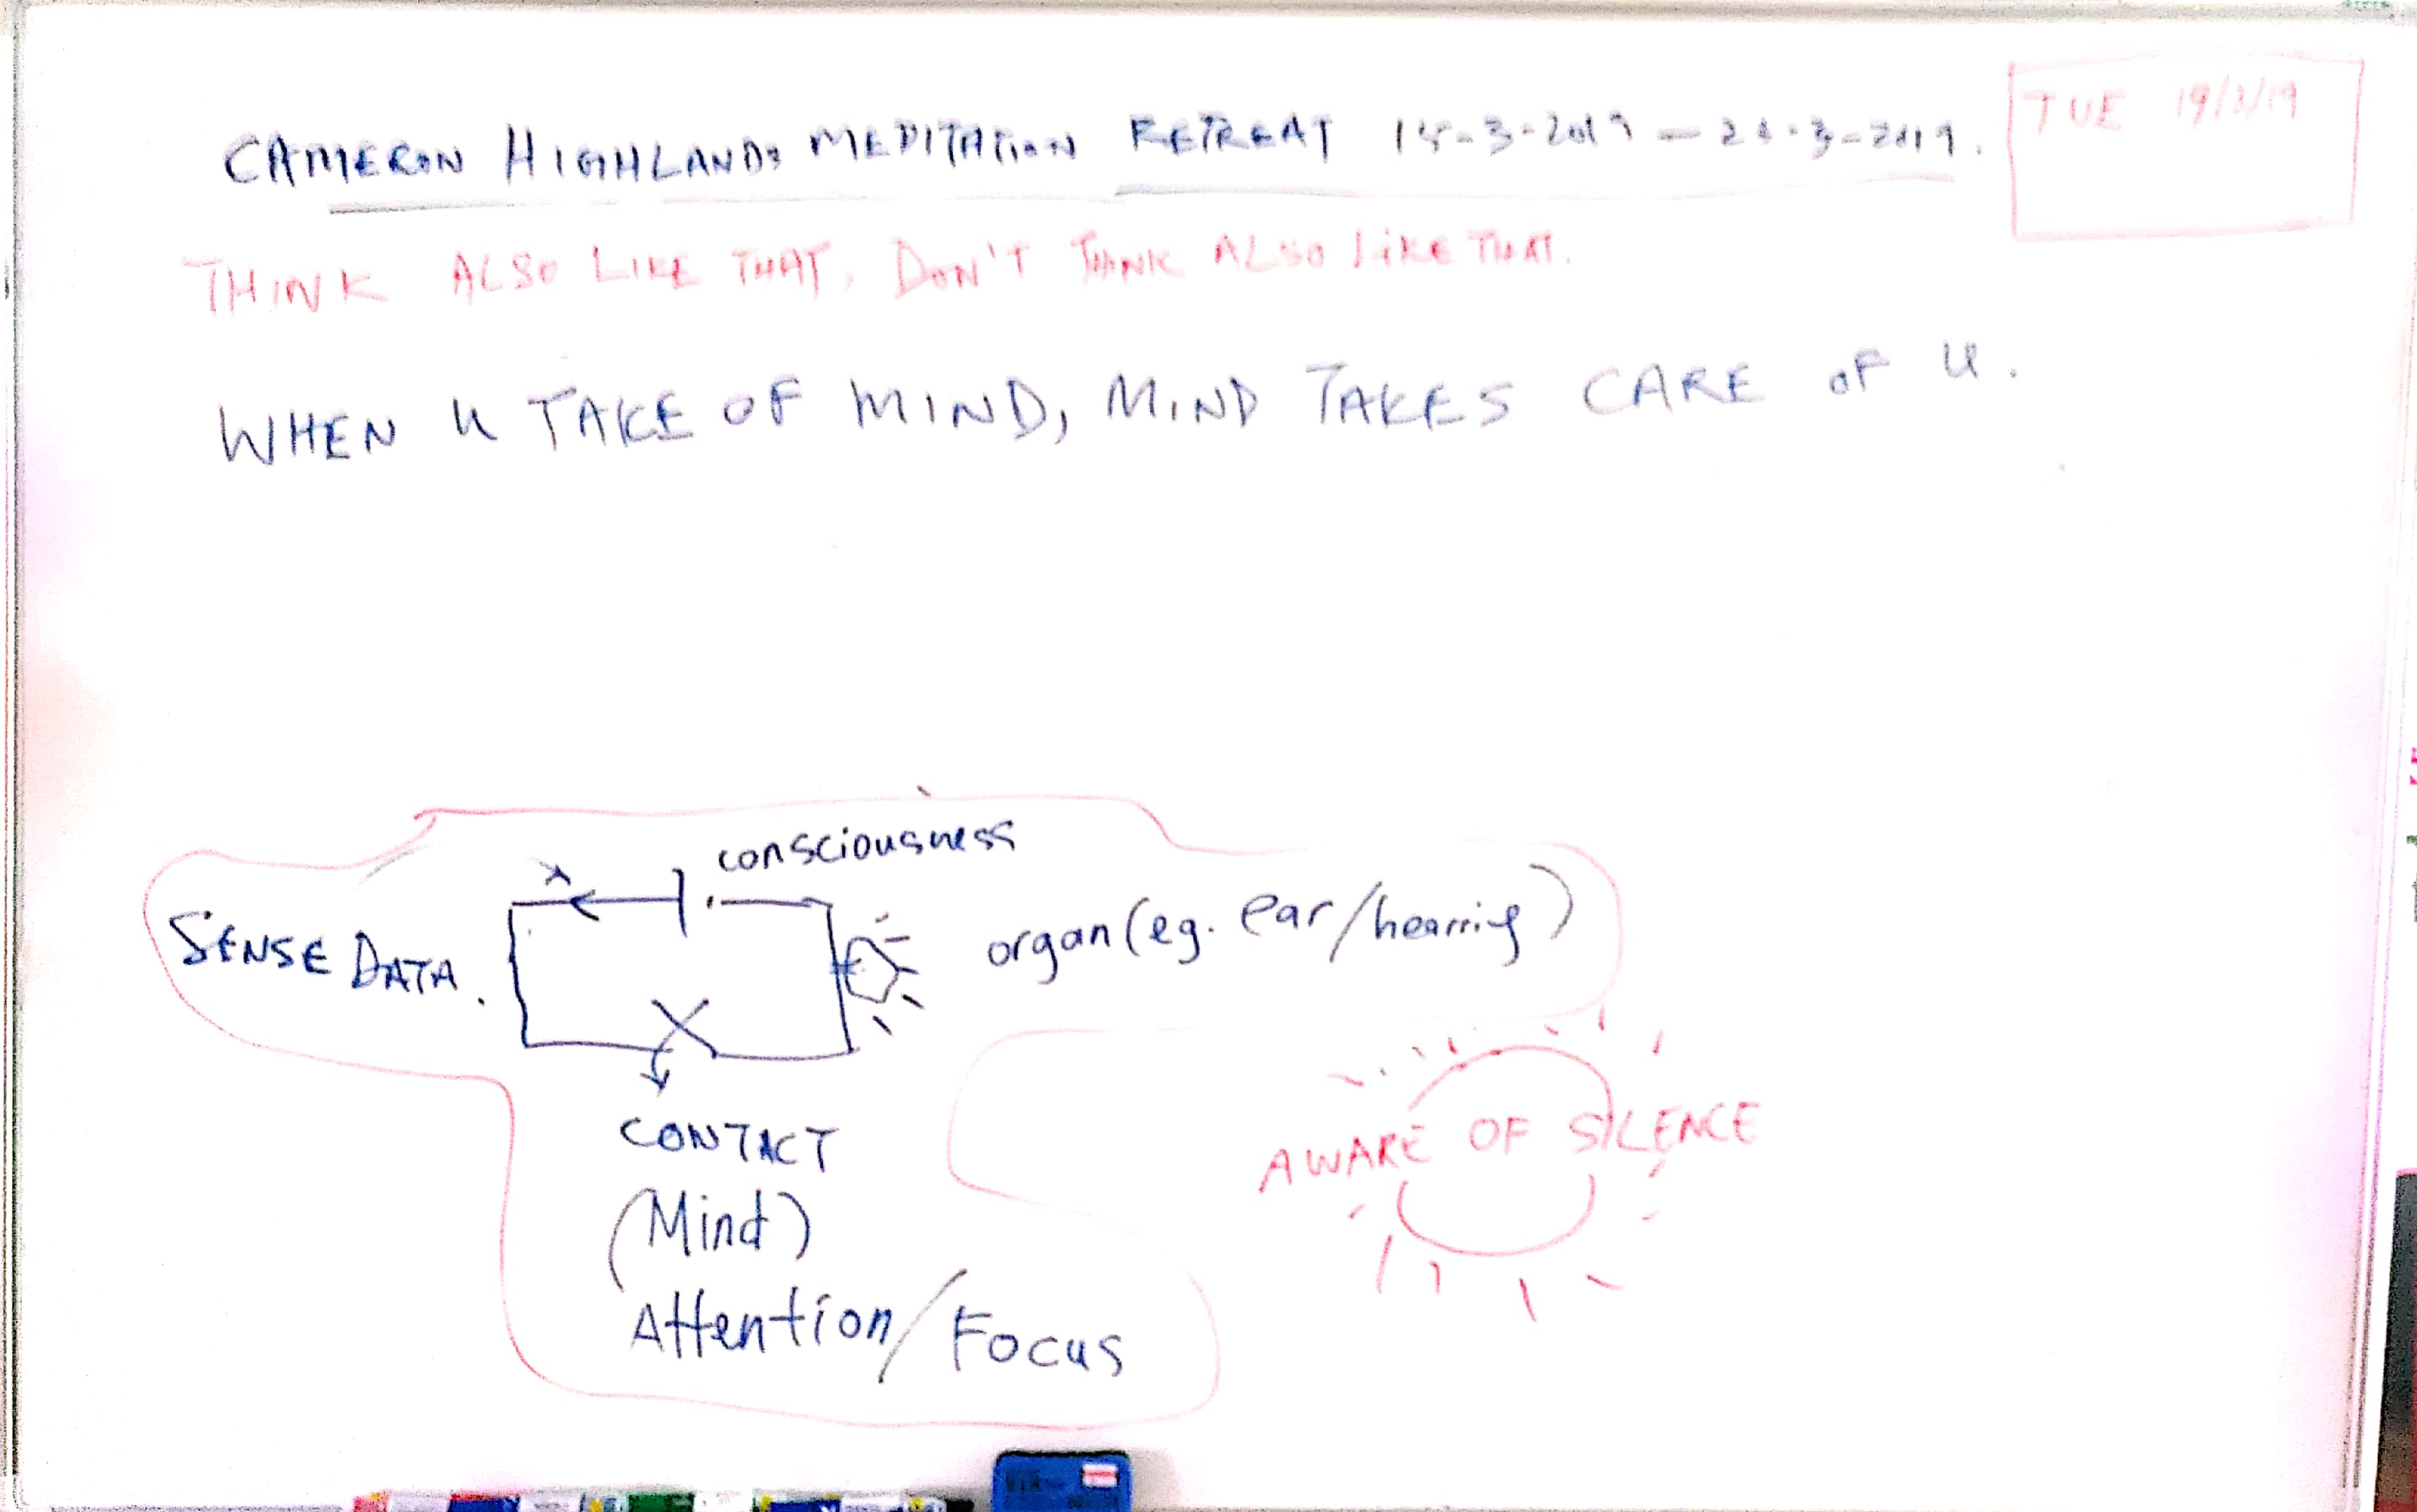 CAMERON HIGHLANDS MEDITATION RETREAT 15-3-2019 -
TUE 19/3/19
THINK ALSO LIKE THAT, DON'T THINK ALSO LIKE THAT.
WHEN U TAKE OF MIND, MIND TAKES CARE OF U.
consciousness
SENSE DATA.
organ (eg. ear/hearing)
CONTACT
(Mind)
Attention/Focus
AWARE OF SILENCE